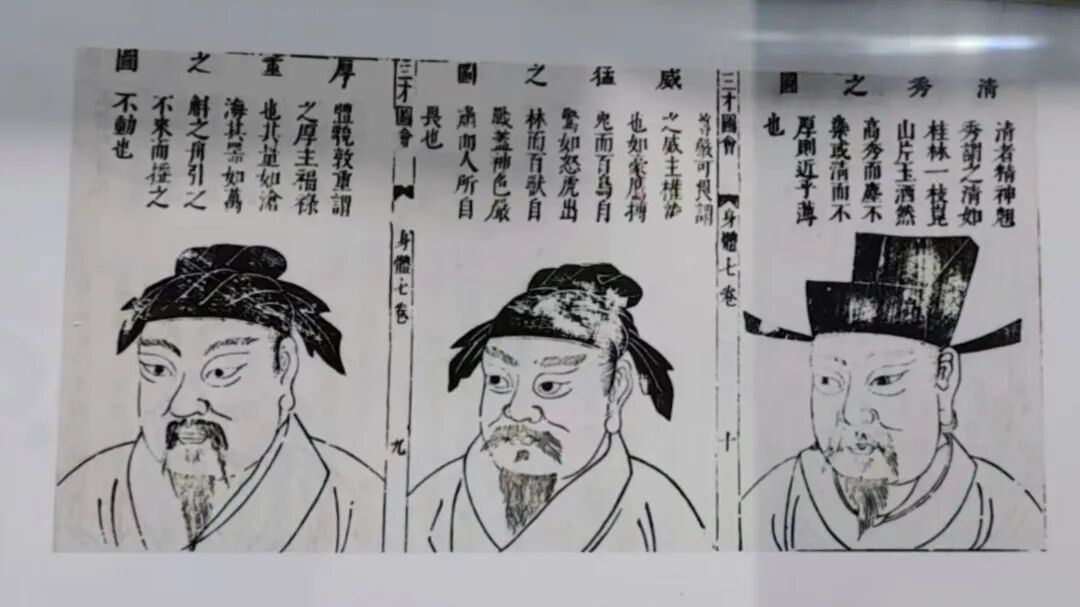 清秀之圖
清者精神翹
秀謂之清如
桂林一枝崑
山片玉洒然
高秀而塵不
染或清而不
厚則近乎薄
也
三才圖會
身體七卷
十
威猛之圖
尊嚴可畏謂
之威主權勢
也如豪鷹搏
兔而百鳥自
驚如怒虎出
林而百獸自
戰蓋神色嚴
肅而人所自
畏也
三才圖會
身體七卷
九
厚重之圖
體貌敦重謂
之厚主福祿
也其量如滄
海其器如萬
斛之舟引之
不來而搖之
不動也